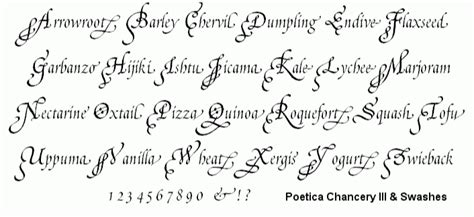 Arrowroot Barley Chervil Dumpling Endive Flaxseed
Garbanzo Hijiki Ishtu Jicama Kale Lychee Marjoram
Nectarine Oxtail Pizza Quinoa Roquefort Squash Tofu
Uppuma Vanilla Wheat Xergis Yogurt Zwieback
1 2 3 4 5 6 7 8 9 0 & ! ? Poetica Chancery III & Swashes